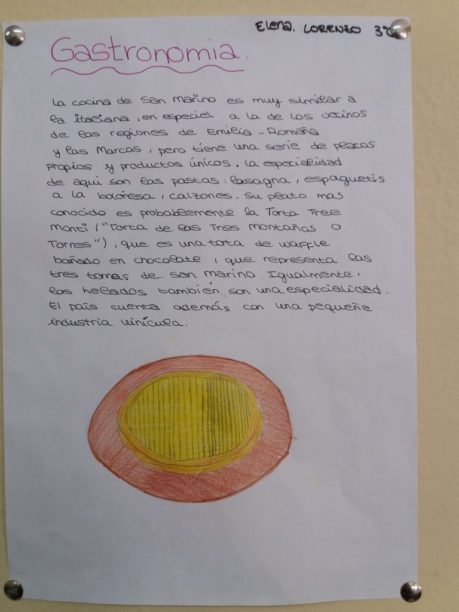 Elena. LORENZO 3º
Gastronomia.
La cocina de San Marino es muy similar a
la italiana, en especial a la de los vecinos
de las regiones de Emilia-Romaña
y las Marcas, pero tiene una serie de platos
propios y productos únicos. La especialidad
de aqui son las pastas: lasagna, espaguetis
a la boloñesa, calzones. Su plato mas
conocido es probablemente la Torta Tree
Monti ("Torta de las Tres Montañas o
Torres"), que es una torta de waffle
bañado en chocolate, que representa las
tres torres de San Marino Igualmente,
los helados también son una especialidad.
El país cuenta además con una pequeña
industria vinícula.